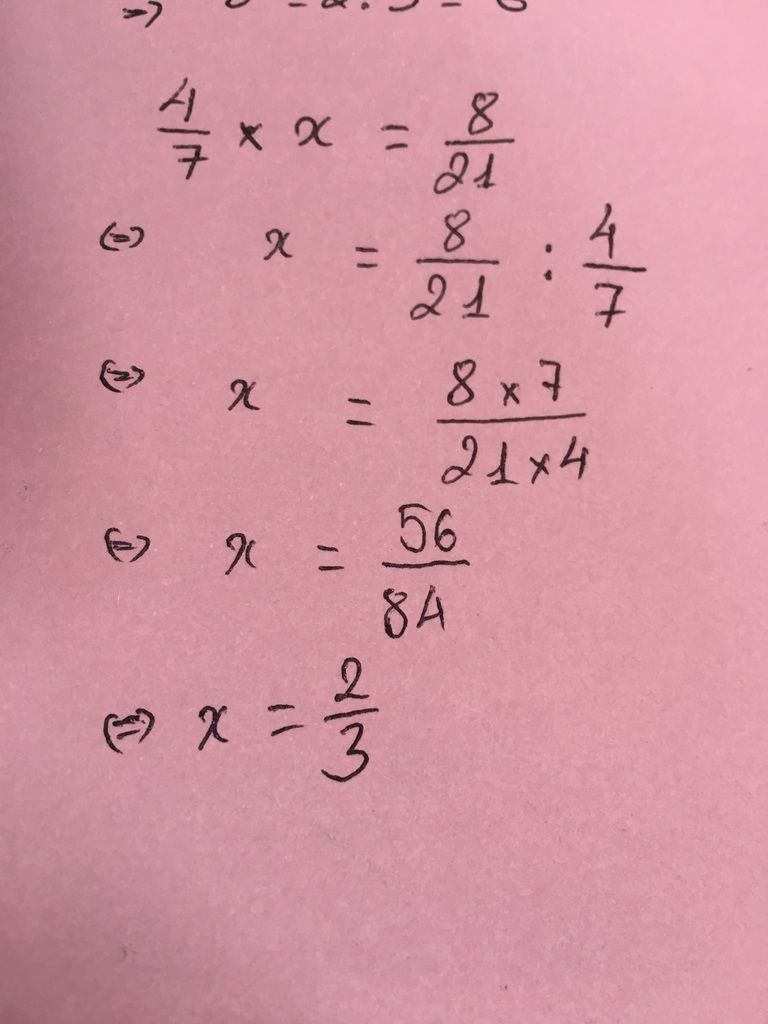 4/7 × x = 8/21
⇔ x = 8/21 : 4/7
⇔ x = 8 × 7/21 × 4
⇔ x = 56/84
⇔ x = 2/3